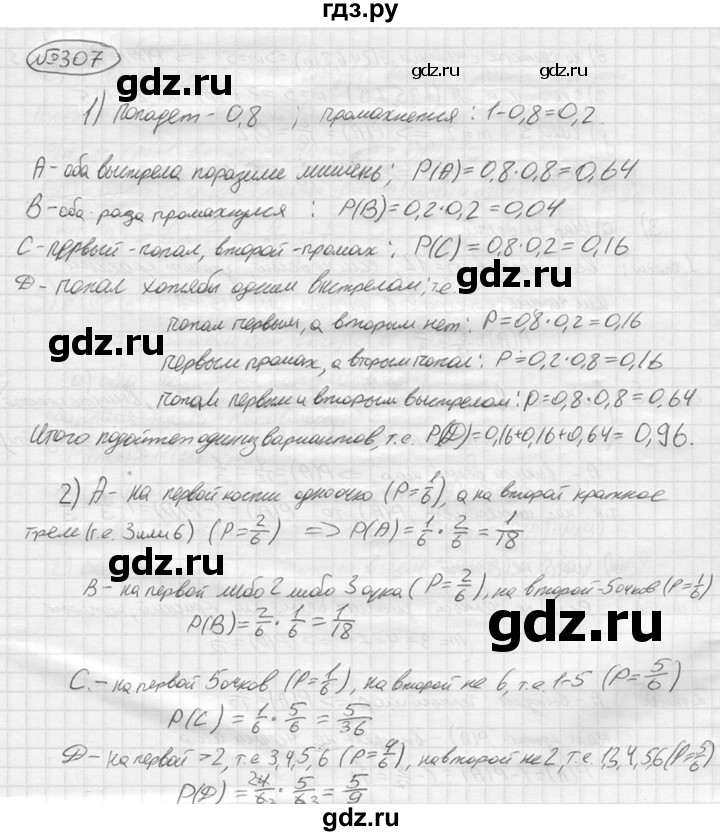 гдз.ру
№307
gdz.ru
gdz.ru
1) Попадет - 0,8 ; промахнется : 1-0,8=0,2.
А - оба выстрела поразили мишень; P(A)=0,8·0,8=0,64
В - оба рада промахнулся : P(B)=0,2·0,2=0,04
gdz.ru
С - первый - попал, второй - промах; P(C)=0,8·0,2=0,16
Д - попал хотябы одним выстрелом; т.е.
gdz.ru
попал первым, а вторым нет: P=0,8·0,2=0,16
gdz.ru
первым промах, а вторым попал: P=0,2·0,8=0,16
попал первым и вторым выстрелом: p=0,8·0,8=0,64
Итого подойтет один из вариантов, т.е. P(Д)=0,16+0,16+0,64=0,96.
2) А - на первой кости одно очко (P=1/6), а на второй кратное
gdz.ru
трем (т.е. 3 или 6) (P=2/6) => P(A)=1/6·2/6=1/18
gdz.ru
В - на первой либо 2 либо 3 очка (P=2/6), на второй - 5 очков (P=1/6)
P(B)=2/6·1/6=1/18
gdz.ru
С. - на первой 5 очков (P=1/6), на второй не 6, т.е. 1-5 (P=5/6)
gdz.ru
P(C)=1/6·5/6=5/36
Д - на первой >2, т.е 3,4,5,6 (P=4/6), на второй не 2, т.е 1,3,4,5,6 (P=5/6)
P(Д)=4/6·5/6=5/9
gdz.ru